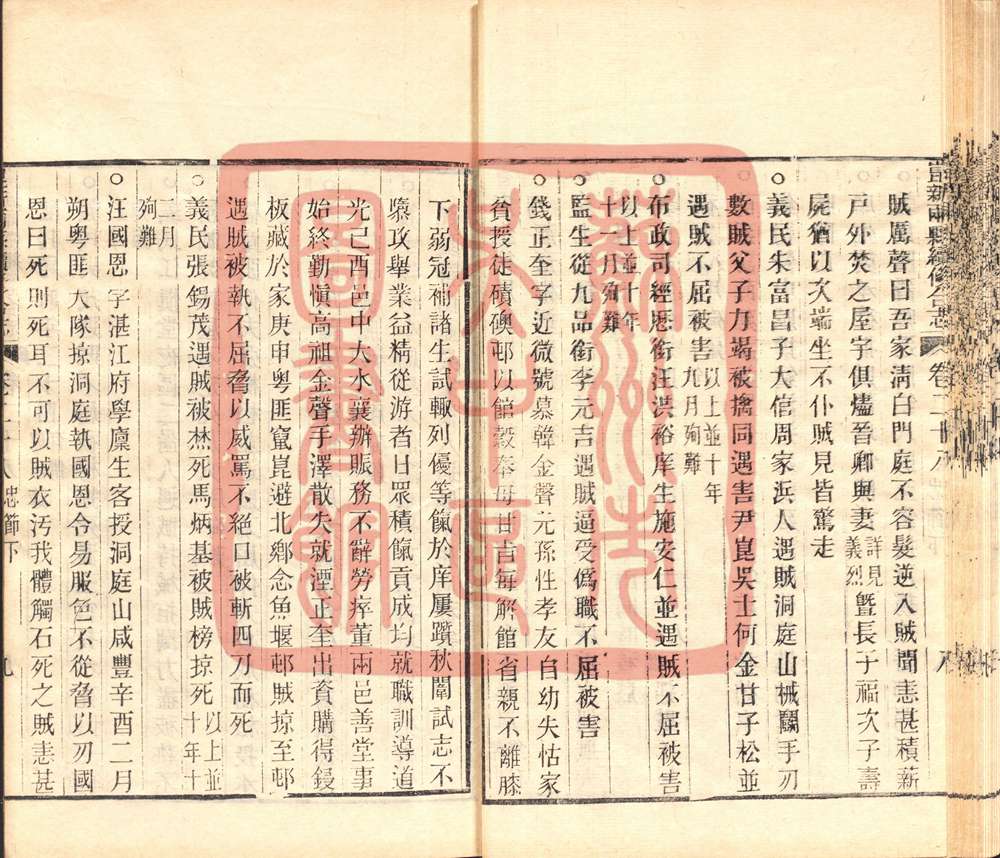 崑新兩縣續修合志 卷二十八
賊厲聲曰吾家淸白門庭不容髮逆入賊聞恚甚積薪
戶外焚之屋宇俱燼晉卿與妻詳見義烈曁長子福次子壽
屍猶以次端坐不仆賊見皆驚走
義民朱富昌子大倌周家浜人遇賊洞庭山械鬭手刃
數賊父子力竭被擒同遇害尹崑吳士何金甘子松並
遇賊不屈被害以上並十年九月殉難
布政司經歷銜汪洪裕庠生施安仁並遇賊不屈被害
以上並十年十一月殉難
監生從九品銜李元吉遇賊逼受僞職不屈被害
錢正奎字近微號慕韓金聲元孫性孝友自幼失怙家
貧授徒磧礇邨以館穀奉母甘旨每解館省親不離膝
下弱冠補諸生試輒列優等餼於庠屢躓秋闈試志不
隳攻舉業益精從游者日眾積餼貢成均就職訓導道
光己酉邑中大水襄辦賑務不辭勞瘁董兩邑善堂事
始終勤愼高祖金聲手澤散失就湮正奎出資購得鋟
板藏於家庚申粵匪竄崑避北鄕念魚堰邨賊掠至邨
遇賊被執不屈脅以威罵不絕口被斬四刀而死
義民張錫茂遇賊被焚死馬炳基被賊榜掠死以上並十年十
二月殉難
汪國恩字湛江府學廩生客授洞庭山咸豐辛酉二月
朔粵匪大隊掠洞庭執國恩令易服色不從脅以刃國
恩曰死則死耳不可以賊衣汚我體觸石死之賊恚甚
忠節下 九
蘇州先
圖書館